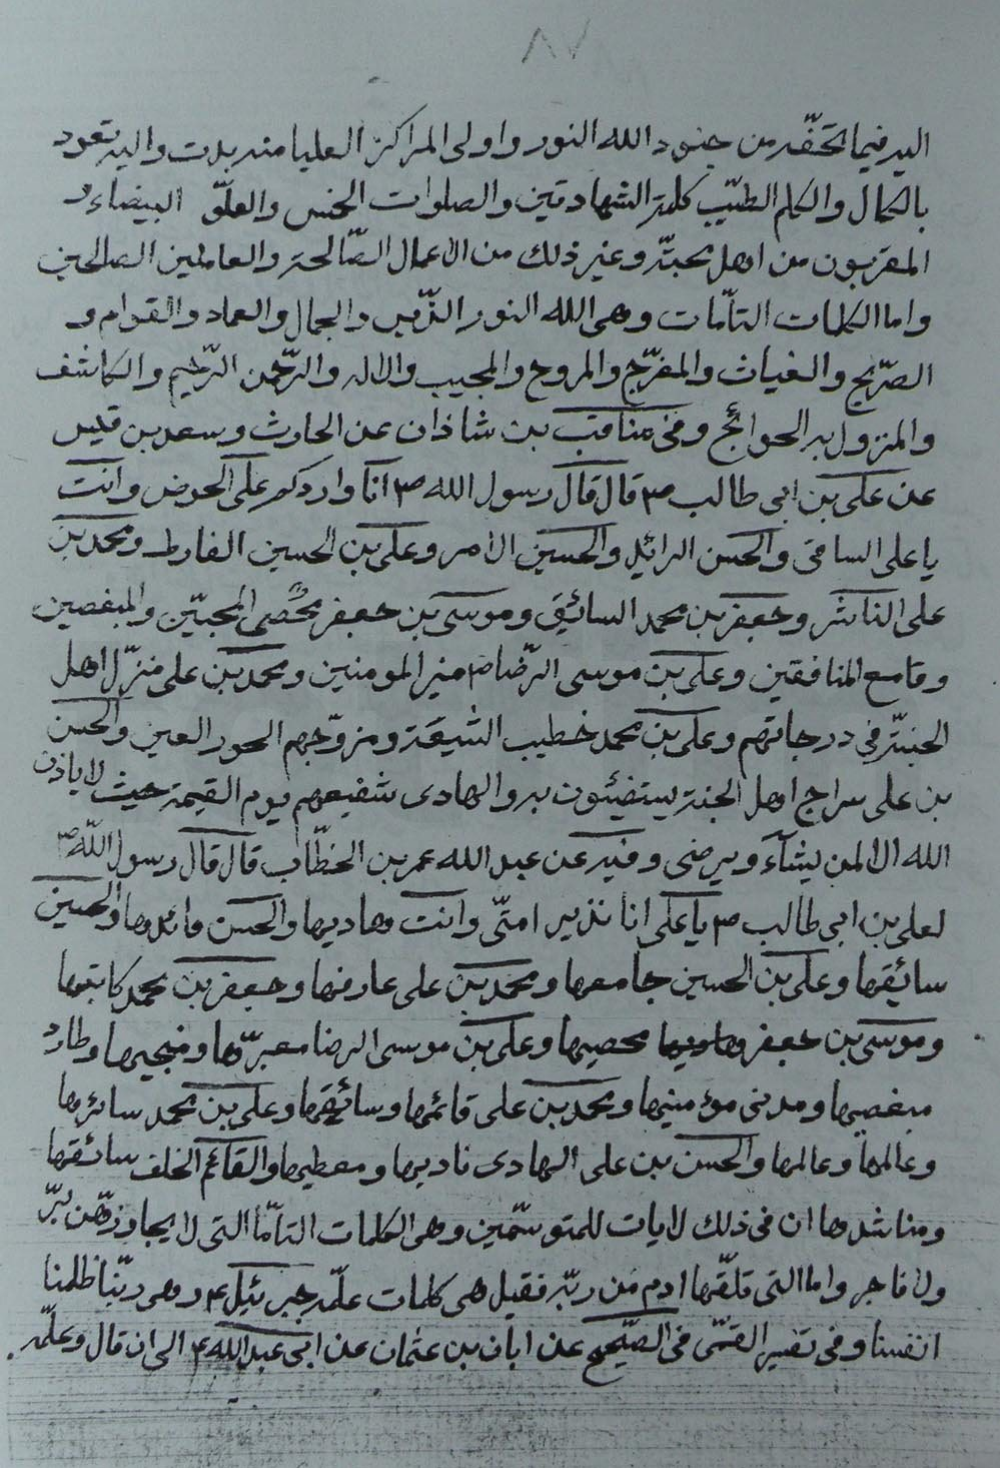 ٨٧
اليه فيما تحفّه من جنود الله النور واولى المراكز العليا منه بدت واليه تعود
بالكمال والكلم الطيّب كلمة الشهادتين والصلوات الخمس والعلّق البيضاء و
المقربون من اهل محبته وغير ذلك من الاعمال الصّالحة والعاملين الصالحين
واما الكلمات التامّات وهى الله النور والجمال والعماد والقوام و
الصّريخ والغياث والمفرّج والمروح والمجيب والاله والرّحمن الرّحيم والكاشف
والمنزول به الحوائج وفى مناقب بن شاذان عن الحارث وسعد بن قيس
عن على بن ابى طالب ص قال قال رسول الله ص انا واردكم على الحوض وانت
يا على الساقى والحسن الرائد والحسين الامر وعلى بن الحسين الفارط ومحمد بن
على الناشر وجعفر بن محمد السائق وموسى بن جعفر محصى المحبّين والمبغضين
وقامع المنافقين وعلى بن موسى الرّضا ص منير المومنين ومحمد بن على منزّل اهل
الجنّة فى درجاتهم وعلى بن محمد خطيب الشيعة ومزوّجهم الحور العين والحسن
بن على سراج اهل الجنة يستضيئون به والهادى شفيعهم يوم القيمة حيث لا ياذن
الله الا لمن يشآء ويرضى وفيه عن عبد الله عمر بن الخطّاب قال قال رسول الله ص
لعلى بن ابى طالب ص يا على انا نذير امتّى وانت هاديها والحسن قائدها والحسين
سائقها وعلى بن الحسين جامعها ومحمد بن على عارفها وجعفر بن محمد كاتبها
وموسى بن جعفر محصيها وعلى بن موسى الرضا معبرّها ومنجيها وطارد
مبغضيها ومدنى مؤمنيها ومحمد بن على قائمها وسائقها وعلى بن محمد سائرها
وعالمها وعالمها والحسن بن على الهادى ناديها ومعطيها والقائم الخلف سائقها
ومناشدها ان فى ذلك لايات للمتوسّمين وهى الكلمات التامّا التى لا يجاوزهّن برّ
ولا فاجر واما التى تلقّها ادم من ربّه فقيل هى كلمات علّمه جبرئيل ع وهى ربّنا ظلمنا
انفسنا وفى تفسير القمّى فى الصّحيح عن ابان بن عثمان عن ابى عبد الله ع الى ان قال وعلّمه